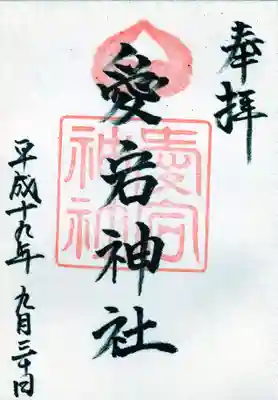 奉拝
愛宕神社
愛宕
神社
平成十九年 九月三十日